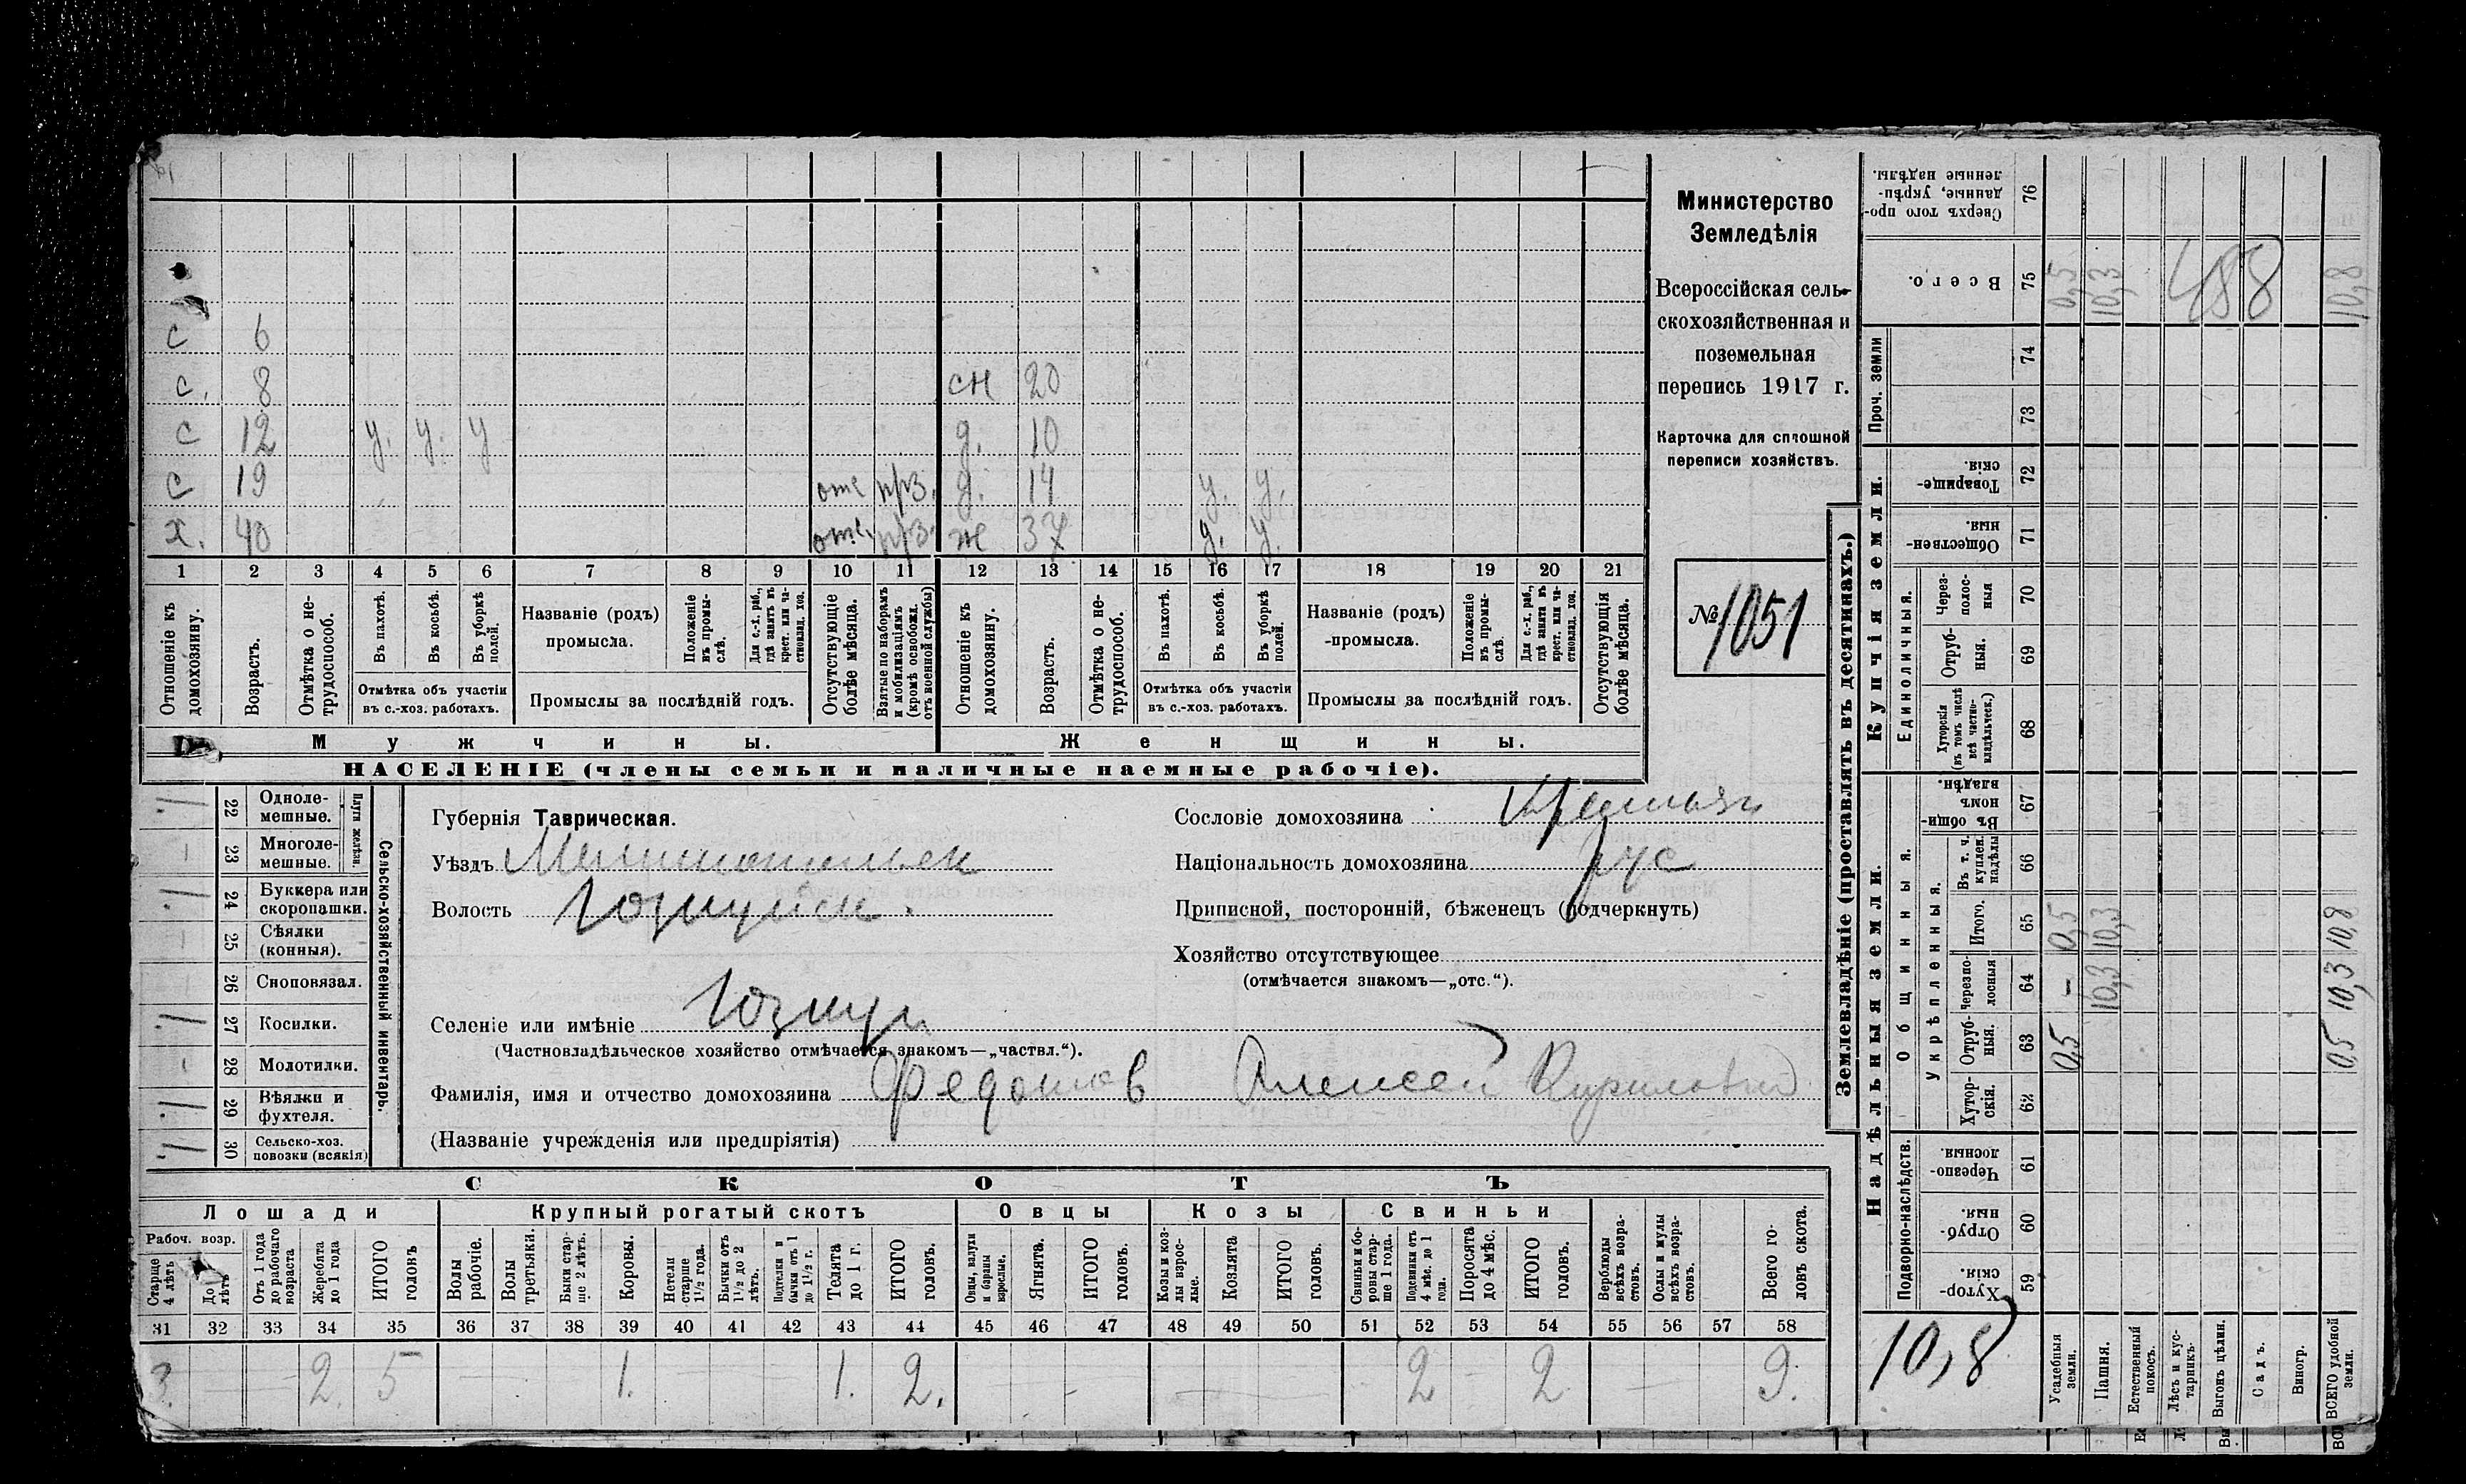 с 6
с. 8 сн 20
с 12 у. у. у д. 10
с 19 отс ррз. д. 14 у. у.
х. 40 отс. ррз. ж 37 у. у.
1 2 3 4 5 6 7 8 9 10 11 12 13 14 15 16 17 18 19 20 21
Отношеніе къ домохозяину.
Возрастъ.
Отмѣтка о не-трудоспособ.
Въ пахотѣ.
Въ косьбѣ.
Въ уборкѣ полей.
Отмѣтка объ участіи въ с.-хоз. работахъ.
Названіе (родъ) промысла.
Положеніе въ промы-слѣ.
Для с.-х. раб., гдѣ занятъ въ крест. или ча-стновлад. хоз.
Промыслы за послѣдній годъ.
Отсутствующіе болѣе мѣсяца.
Взятые по наборамъ и мобилизаціямъ (кромѣ освобожд. отъ военной службы)
Отношеніе къ домохозяину.
Возрастъ.
Отмѣтка о не-трудоспособ.
Въ пахотѣ.
Въ косьбѣ.
Въ уборкѣ полей.
Отмѣтка объ участіи въ с.-хоз. работахъ.
Названіе (родъ) -промысла.
Положеніе въ промы-слѣ.
Для с.-х. раб., гдѣ занята въ крест. или ча-стновлад. хоз.
Промыслы за послѣдній годъ.
Отсутствующія болѣе мѣсяца.
Мужчины.
Женщины.
НАСЕЛЕНІЕ (члены семьи и наличные наемные рабочіе).
Министерство
Земледѣлія
Всероссійская сель-
скохозяйственная и
поземельная
перепись 1917 г.
Карточка для сплошной
переписи хозяйствъ.
№ 1051
22 Одноле-мешные.
23 Многоле-мешные.
Плуги желѣзн.
24 Буккера или скоропашки.
25 Сѣялки (конныя).
26 Сноповязал.
27 Косилки.
28 Молотилки.
29 Вѣялки и фухтеля.
30 Сельско-хоз. повозки (всякія)
Сельско-хозяйственный инвентарь.
Губернія Таврическая.
Уѣздъ Мелитопольск
Волость
Селеніе или имѣніе
(Частновладѣльческое хозяйство отмѣчается знакомъ—„частвл.“).
Фамилія, имя и отчество домохозяина Федотов Алексей Кирилович
(Названіе учрежденія или предпріятія)
Сословіе домохозяина Крестьян
Національность домохозяина рус
Приписной, посторонній, бѣженецъ (подчеркнуть)
Хозяйство отсутствующее
(отмѣчается знакомъ—„отс.“).
СКОТЪ
Лошади
Рабоч. возр.
Старше 4 лѣтъ
До 4 лѣтъ
Отъ 1 года до рабочаго возраста
Жеребята до 1 года
ИТОГО головъ
Крупный рогатый скотъ
Волы рабочіе.
Волы третьяки.
Быки стар-ше 2 лѣтъ.
Коровы.
Нетели старше 1½ года.
Бычки отъ 1½ до 2 лѣтъ.
Подтелки и бычки отъ 1 до 1½ г.
Телята до 1 г.
ИТОГО головъ.
Овцы
Овцы, валухи и бараны взрослые.
Ягнята.
ИТОГО головъ.
Козы
Козы и коз-лы взрос-лые.
Козлята
ИТОГО головъ.
Свиньи
Свиньи и бо-ровы стар-ше 1 года.
Подсвинки отъ 4 мѣс. до 1 года.
Поросята до 4 мѣс.
ИТОГО головъ.
Верблюды всѣхъ возра-стовъ.
Ослы и мулы всѣхъ возра-стовъ.
Всего го-ловъ скота.
31 32 33 34 35 36 37 38 39 40 41 42 43 44 45 46 47 48 49 50 51 52 53 54 55 56 57 58
3. 2. 5 1. 1. 2. 2 2 9.
Землевладѣніе (проставлять въ десятинахъ.)
Купчія земли.
Надѣльныя земли.
Сверхъ того про-данные, укрѣп-ленные надѣлы. 76
Всего. 75 0,5 10,3 488 10,8
Проч. земли
74
73
Товарище-скія. 72
Обществен-ныя. 71
Единоличныя.
Через-полос-ныя 70
Отруб-ныя. 69
Хуторскія (въ томъ числѣ всѣ частно-владѣльческ.) 68
Общинныя.
Въ общин-номъ владѣн. 67
Укрѣпленныя.
Въ т. ч. куплен. надѣлы 66
Итого. 65 0,5 10,3 10,8
Черезпо-лосныя 64 - 10,3 10,3
Отруб-ныя. 63 0,5 0,5
Хутор-скія. 62
Подворно-наслѣдств.
Черезпо-лосныя. 61
Отруб-ныя. 60
Хутор-скія. 59
10,8
Усадебныя земли.
Пашня.
Естественный покосъ.
Лѣсъ и кус-тарникъ.
Выгонъ цѣлин.
Садъ.
Виногр.
ВСЕГО удобной земли.